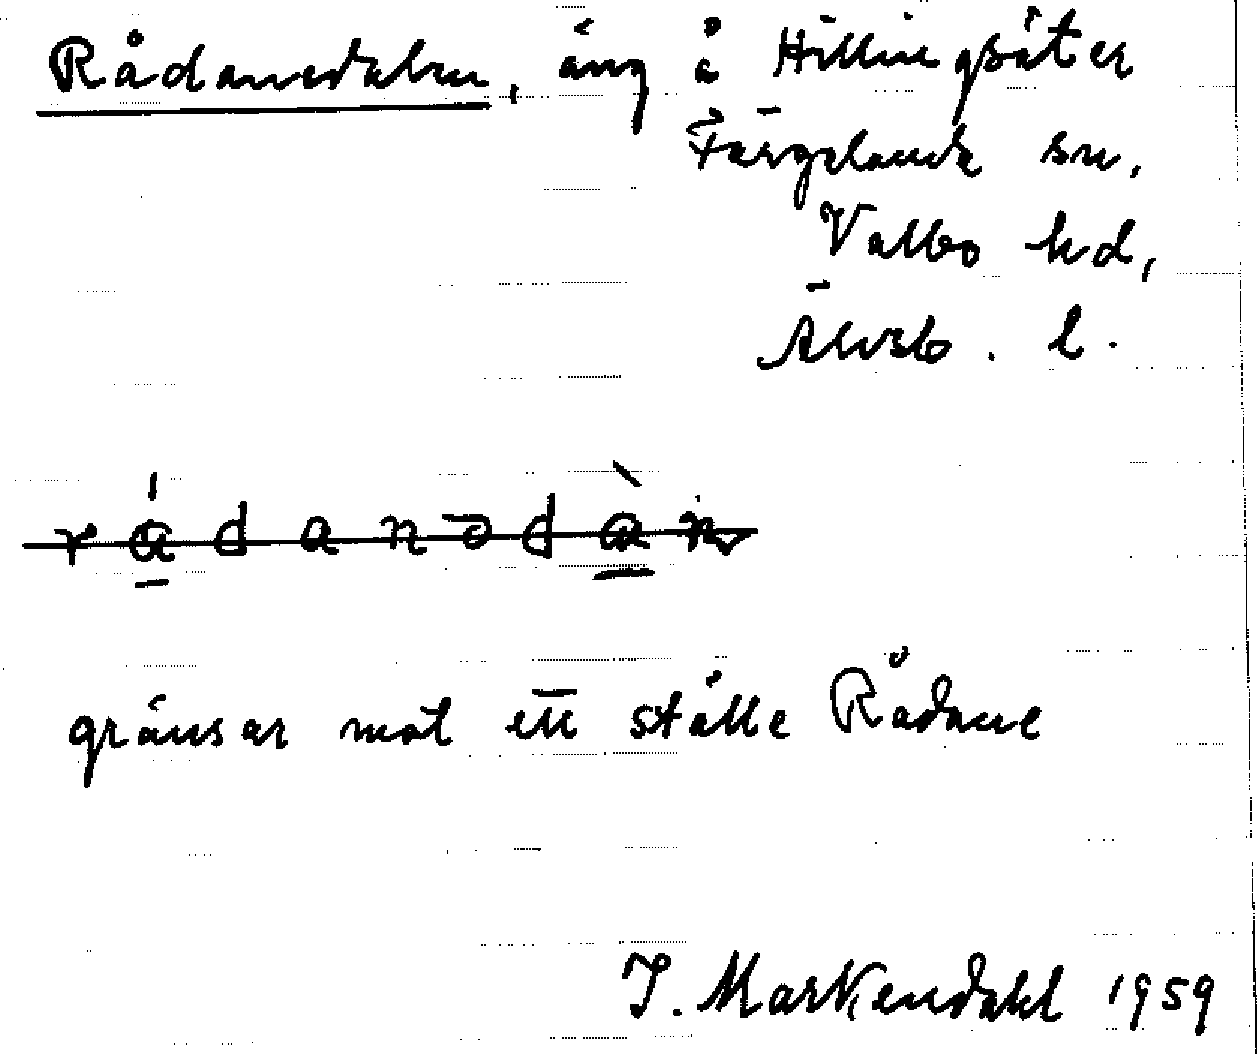 Rådanedalen, äng å Hillingsäter
Färgelanda sn,
Valbo hd,
Älvsb. l.
gränsar mot ett ställe Rådane
J. Markendahl 1959